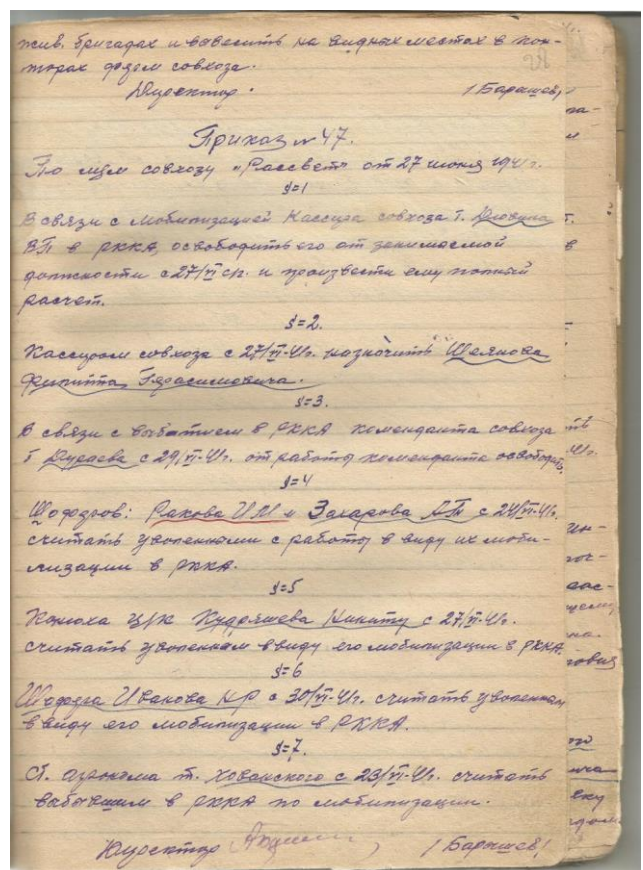 жив. бригадах и вывесить на видных местах в кон-
торах ферм совхоза.
Директор. /Барышев/
Приказ № 47.
По совхозу "Рассвет" от 27 июня 1941г.
§=1
В связи с мобилизацией кассира совхоза т.
ВП в РККА, освободить его от занимаемой
должности с 27/VI с/г. и произвести ему полный
расчет.
§=2.
Кассиром совхоза с 27/VI-41г. назначить
Филиппа Герасимовича.
§=3.
В связи с выбытием в РККА коменданта совхоза
т с 29/VI-41г. от работы коменданта освободить.
§=4
Шоферов: Ракова ИМ и Захарова АП с 24/VI-41г.
считать уволенными с работы в виду их моби-
лизации в РККА.
§=5
Конюха ц/к Кудряшева Никиту с 27/VI-41г.
считать уволенным ввиду его мобилизации в РККА.
§=6
Шофера Иванова НР с 30/VI-41г. считать уволенным
ввиду его мобилизации в РККА.
§=7.
Ст. агронома т. Хованского с 23/VI-41г. считать
выбывшим в РККА по мобилизации.
Директор /Барышев/